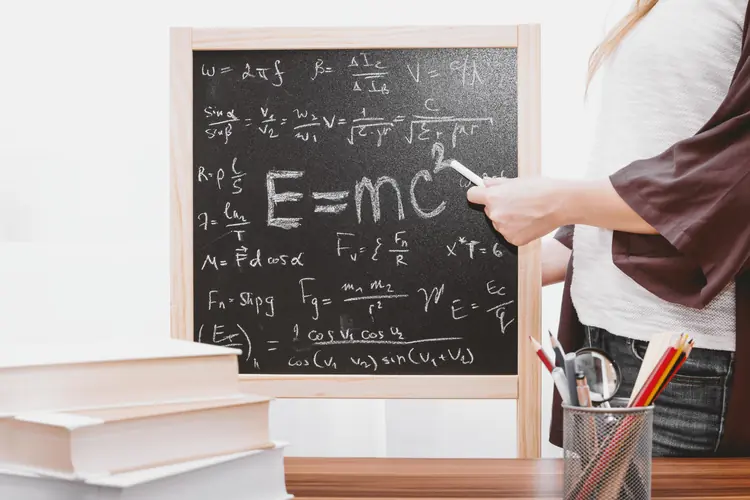 ω = 2πf β = ΔI₂/ΔI_B V = c/λ
sinα/sinβ = v₁/v₂ = w₂/w₁ V = 1/√ = c/√
R = ρ l/S
E = mc²
ln₂/T
F_v = { F_n/R
M = F⃗ d cosα x*T = 6
F_n = Shρg F_g = m₁ m₂/r² E = E_c/q
= 1 cos v₁ cos v₂/cos(v₁ v₂) sin(v₁+v₂)